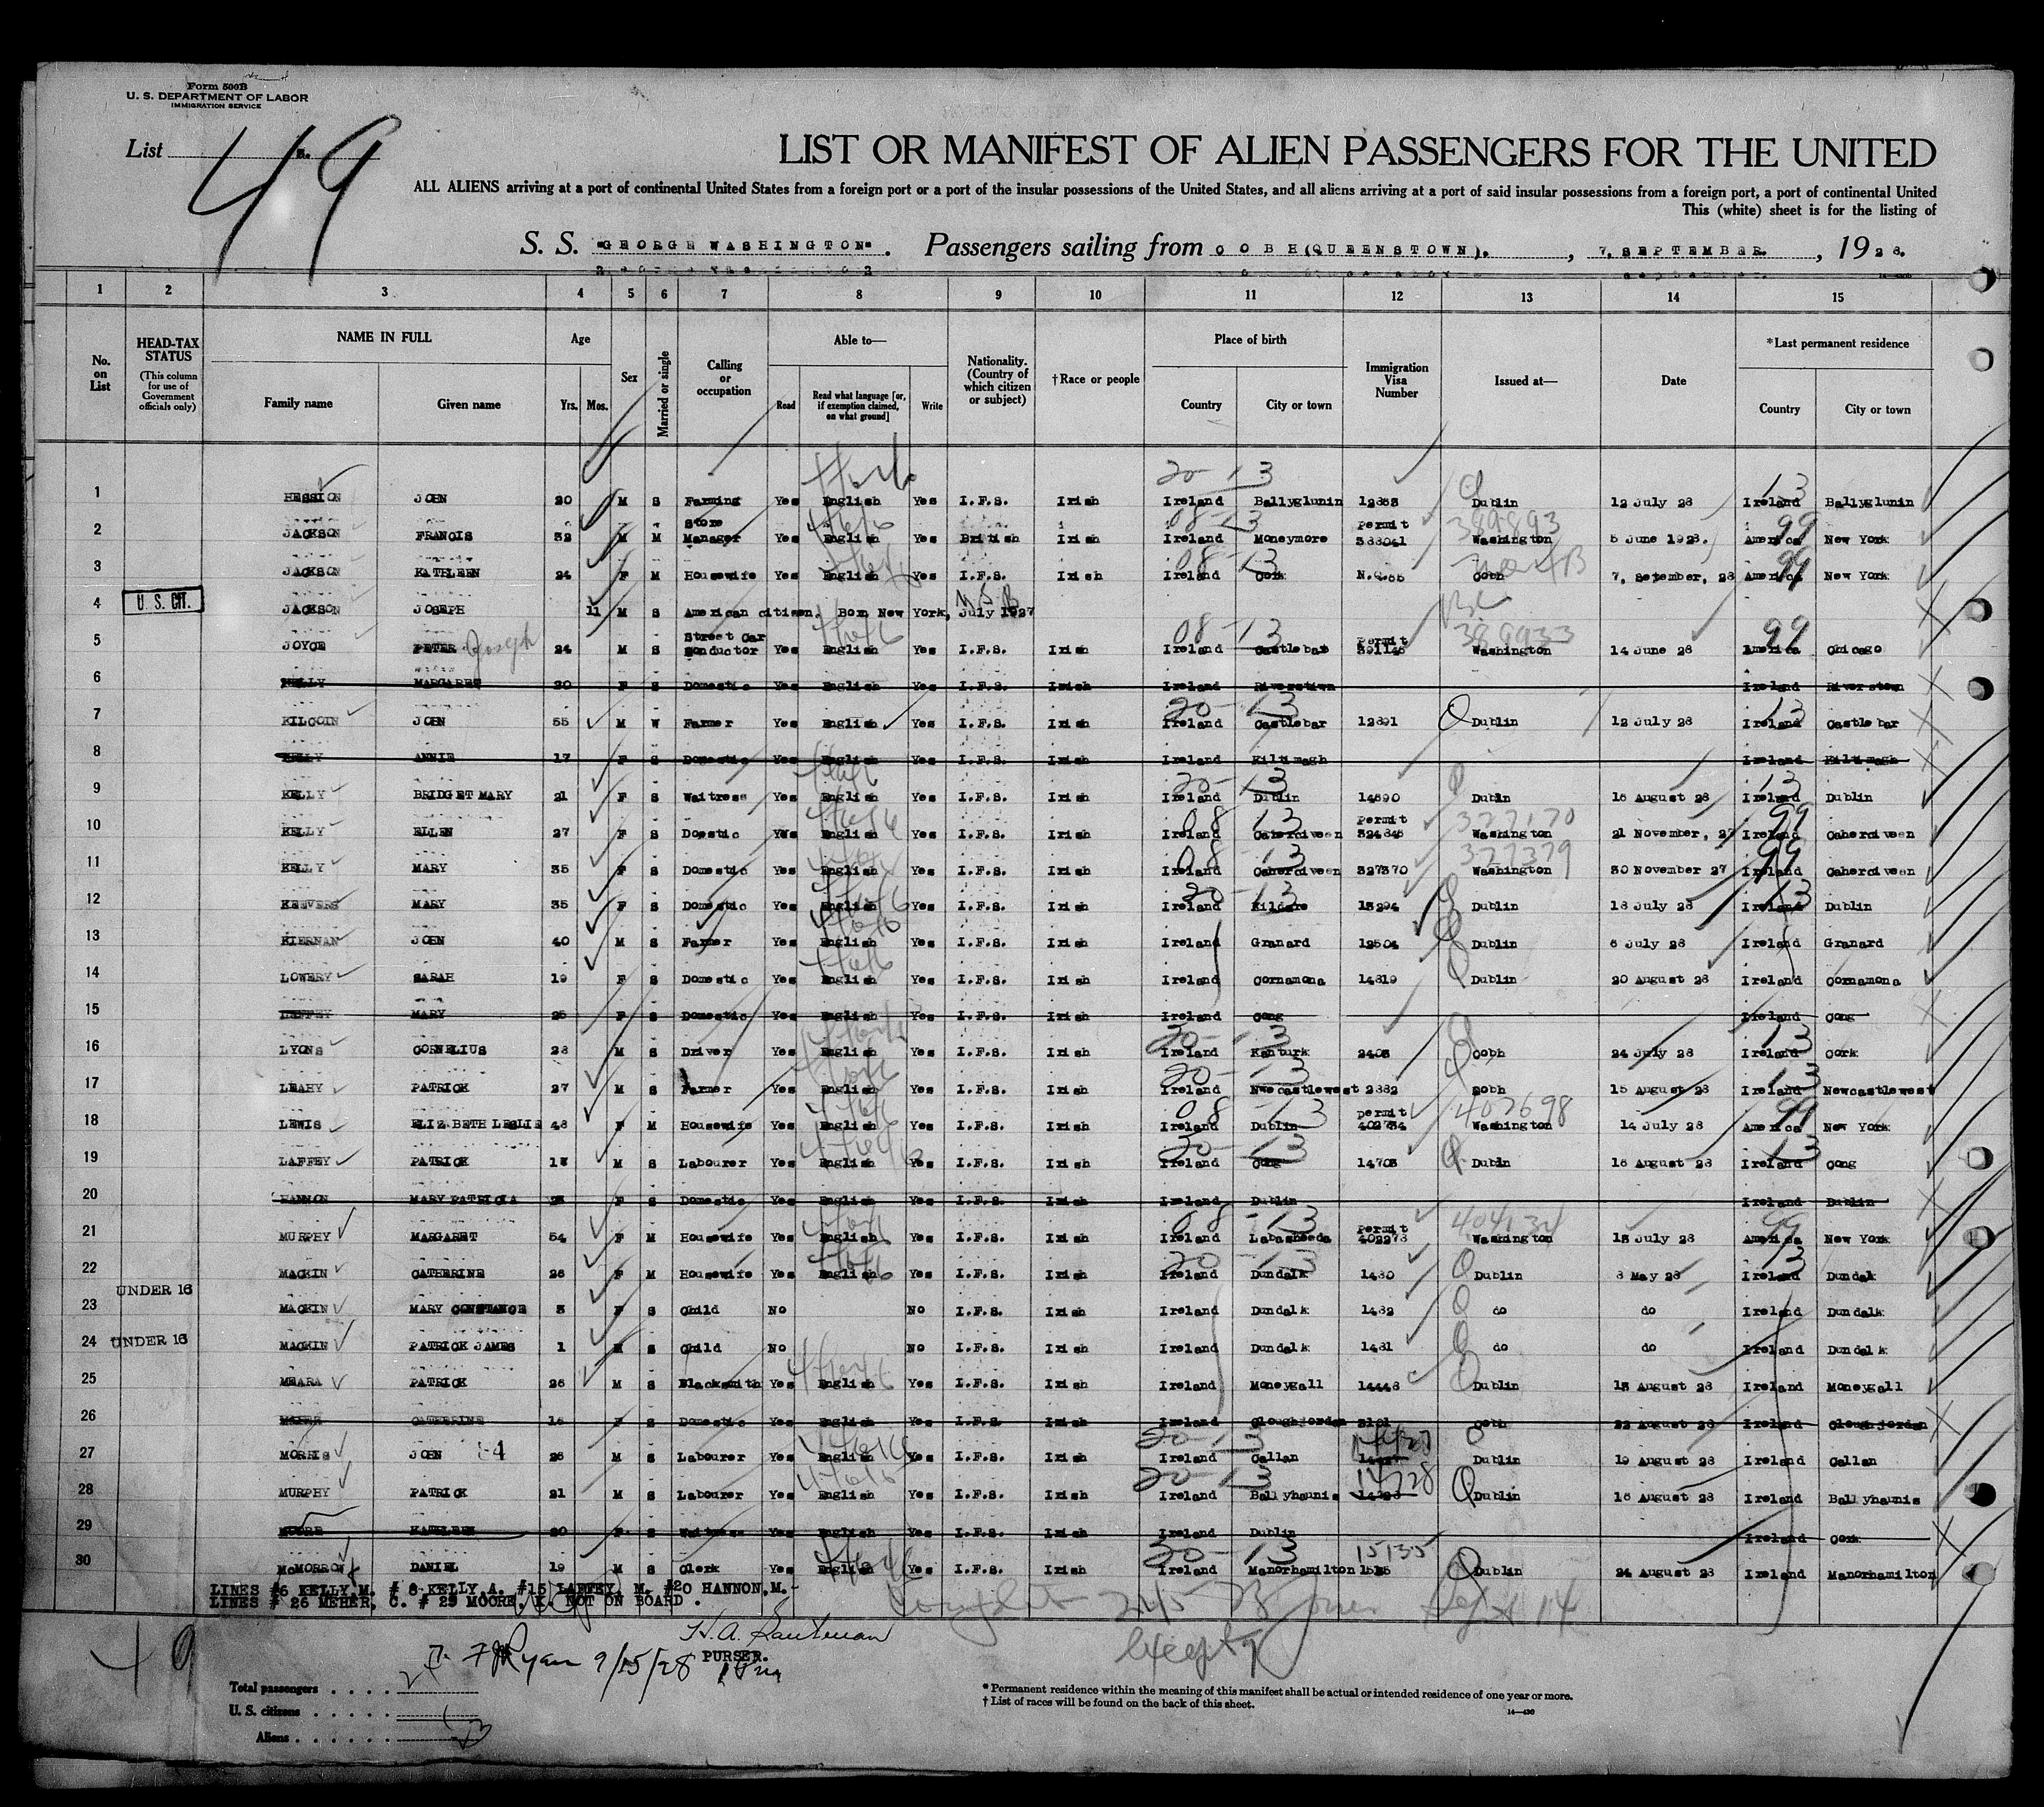 Form 500B
U. S. DEPARTMENT OF LABOR
IMMIGRATION SERVICE
List 49
LIST OR MANIFEST OF ALIEN PASSENGERS FOR THE UNITED
ALL ALIENS arriving at a port of continental United States from a foreign port or a port of the insular possessions of the United States, and all aliens arriving at a port of said insular possessions from a foreign port, a port of continental United
This (white) sheet is for the listing of
S. S. "GEORGE WASHINGTON". Passengers sailing from COBH (QUEENSTOWN)., 7, SEPTEMBER., 1928.
1 2 3 4 5 6 7 8 9 10 11 12 13 14 15
No. on List
HEAD-TAX STATUS
(This column for use of Government officials only)
NAME IN FULL
Family name Given name
Age
Yrs. Mos.
Sex
Married or single
Calling or occupation
Able to—
Read
Read what language [or, if exemption claimed, on what ground]
Write
Nationality. (Country of which citizen or subject)
†Race or people
Place of birth
Country City or town
Immigration Visa Number
Issued at—
Date
*Last permanent residence
Country City or town
1 HESSION JOHN 20 M S Farming Yes English Yes I.F.S. Irish Ireland Ballyglunin 12383 Dublin 12 July 28 Ireland Ballyglunin
2 JACKSON FRANCIS 32 M M Store Manager Yes English Yes British Irish Ireland Moneymore Permit 388041 389893 Washington 5 June 1928. America New York
3 JACKSON KATHLEEN 24 F M Housewife Yes English Yes I.F.S. Irish Ireland Cork Cobh 7, Setember, 28 America New York
4 U. S. CIT. JACKSON JOSEPH 11 M S American citizen. Born New York, July 1927
5 JOYCE PETER Joseph 24 M S Street Car conductor Yes English Yes I.F.S. Irish Ireland Castlebar Permit 391146 389933 Washington 14 June 28 America Chicago
6 KELLY MARGARET 20 F S Domestic Yes English Yes I.F.S. Irish Ireland Riverstown Ireland Riverstown
7 KILCOIN JOHN 55 M W Farmer Yes English Yes I.F.S. Irish Ireland Castlebar 12391 Dublin 12 July 28 Ireland Castlebar
8 KELLY ANNIE 17 F S Domestic Yes English Yes I.F.S. Irish Ireland Kiltimagh Ireland Kiltimagh
9 KELLY BRIDGET MARY 21 F S Waitress Yes English Yes I.F.S. Irish Ireland Dublin 14690 Dubln 16 August 28 Ireland Dublin
10 KELLY ELLEN 27 F S Doestic Yes English Yes I.F.S. Irish Ireland Caherciveen Permit 324846 377170 Washington 21 November, 27 Ireland Caherciveen
11 KELLY MARY 35 F S Domestic Yes English Yes I.F.S. Irish Ireland Caherciveen 327370 377379 Washington 30 November 27 Ireland Caherciveen
12 KEEVERS MARY 35 F S Domestic Yes English Yes I.F.S. Irish Ireland Kildare 13294 Dublin 18 July 28 Ireland Dublin
13 KIERNAN JOHN 40 M S Farmer Yes English Yes I.F.S. Irish Ireland Granard 12504 Dublin 6 July 28 Ireland Granard
14 LOWERY SARAH 19 F S Domestic Yes English Yes I.F.S. Irish Ireland Cornamona 14819 Dublin 20 August 28 Ireland Cornamona
15 LAFFEY MARY 25 F S Domestic Yes English Yes I.F.S. Irish Ireland Cong Ireland Cong
16 LYONS CORNELIUS 28 M S Driver Yes English Yes I.F.S. Irish Ireland Kanturk 2403 Cobh 24 July 28 Ireland Cork
17 LEAHY PATRICK 27 M S Farmer Yes English Yes I.F.S. Irish Ireland Nwecastlewest 2882 Cobh 15 August 28 Ireland Newcastlewest
18 LEWIS ELIZ.BETH LESLIE 48 F M Housewife Yes English Yes I.F.S. Irish Ireland Dublin Permit 402734 407698 Washington 14 July 28 America New York
19 LAFFEY PATRICK 18 M S Labourer Yes English Yes I.F.S. Irish Ireland Cong 14703 Dubln 16 August 28 Ireland Cong
20 HANNON MARY PATRICIA 25 F S Domestic Yes English Yes I.F.S. Irish Ireland Dublin Ireland Dublin
21 MURPHY MARGARET 54 F M Housewife Yes English Yes I.F.S. Irish Ireland Labasheeda Permit 402273 404134 Washington 13 July 28 America New York
22 MACKIN CATHERINE 26 F M Housewife Yes English Yes I.F.S. Irish Ireland Dundalk 1480 Dublin 8 May 28 Ireland Dundalk
23 UNDER 16 MACKIN MARY CONSTANCE 3 F S Child No No I.F.S. Irish Ireland Dundalk 1482 do do Ireland Dundalk
24 UNDER 16 MACKIN PATRICK JAMES 1 M S Child No No I.F.S. Irish Ireland Dundalk 1481 do do Ireland Dundalk
25 MEARA PATRICK 26 M S Blacksmith Yes English Yes I.F.S. Irish Ireland Moneygall 14448 Dublin 13 August 28 Ireland Moneygall
26 MEHER CATHERINE 18 F S Domestic Yes English Yes I.F.S. Irish Ireland Cloughjordan 3101 Cobh 22 August 28 Ireland Cloughjordan
27 MORRIS JOHN 26 M S Labourer Yes English Yes I.F.S. Irish Ireland Callan Dublin 19 August 28 Ireland Callan
28 MURPHY PATRICK 21 M S Labourer Yes English Yes I.F.S. Irish Ireland Ballyhaunis 14728 Dublin 16 August 28 Ireland Ballyhaunis
29 MOORE KATHLEEN 20 F S Waitress Yes English Yes I.F.S. Irish Ireland Dublin Ireland Cork
30 McMORROW DANIEL 19 M S Clerk Yes English Yes I.F.S. Irish Ireland Manorhamilton 15135 Dublin 24 August 28 Ireland Manorhamilton
LINES #6 KELLY,M. # 8 KELLY,A. #15 LAFFEY, M. #20 HANNON,M.-
LINES # 26 MEHER, C. # 29 MOORE, K. NOT ON BOARD .
PURSER.
49
Ryan 9/15/28
Total passengers
U. S. citizens
Aliens
* Permanent residence within the meaning of this manifest shall be actual or intended residence of one year or more.
† List of races will be found on the back of this sheet.
14—430